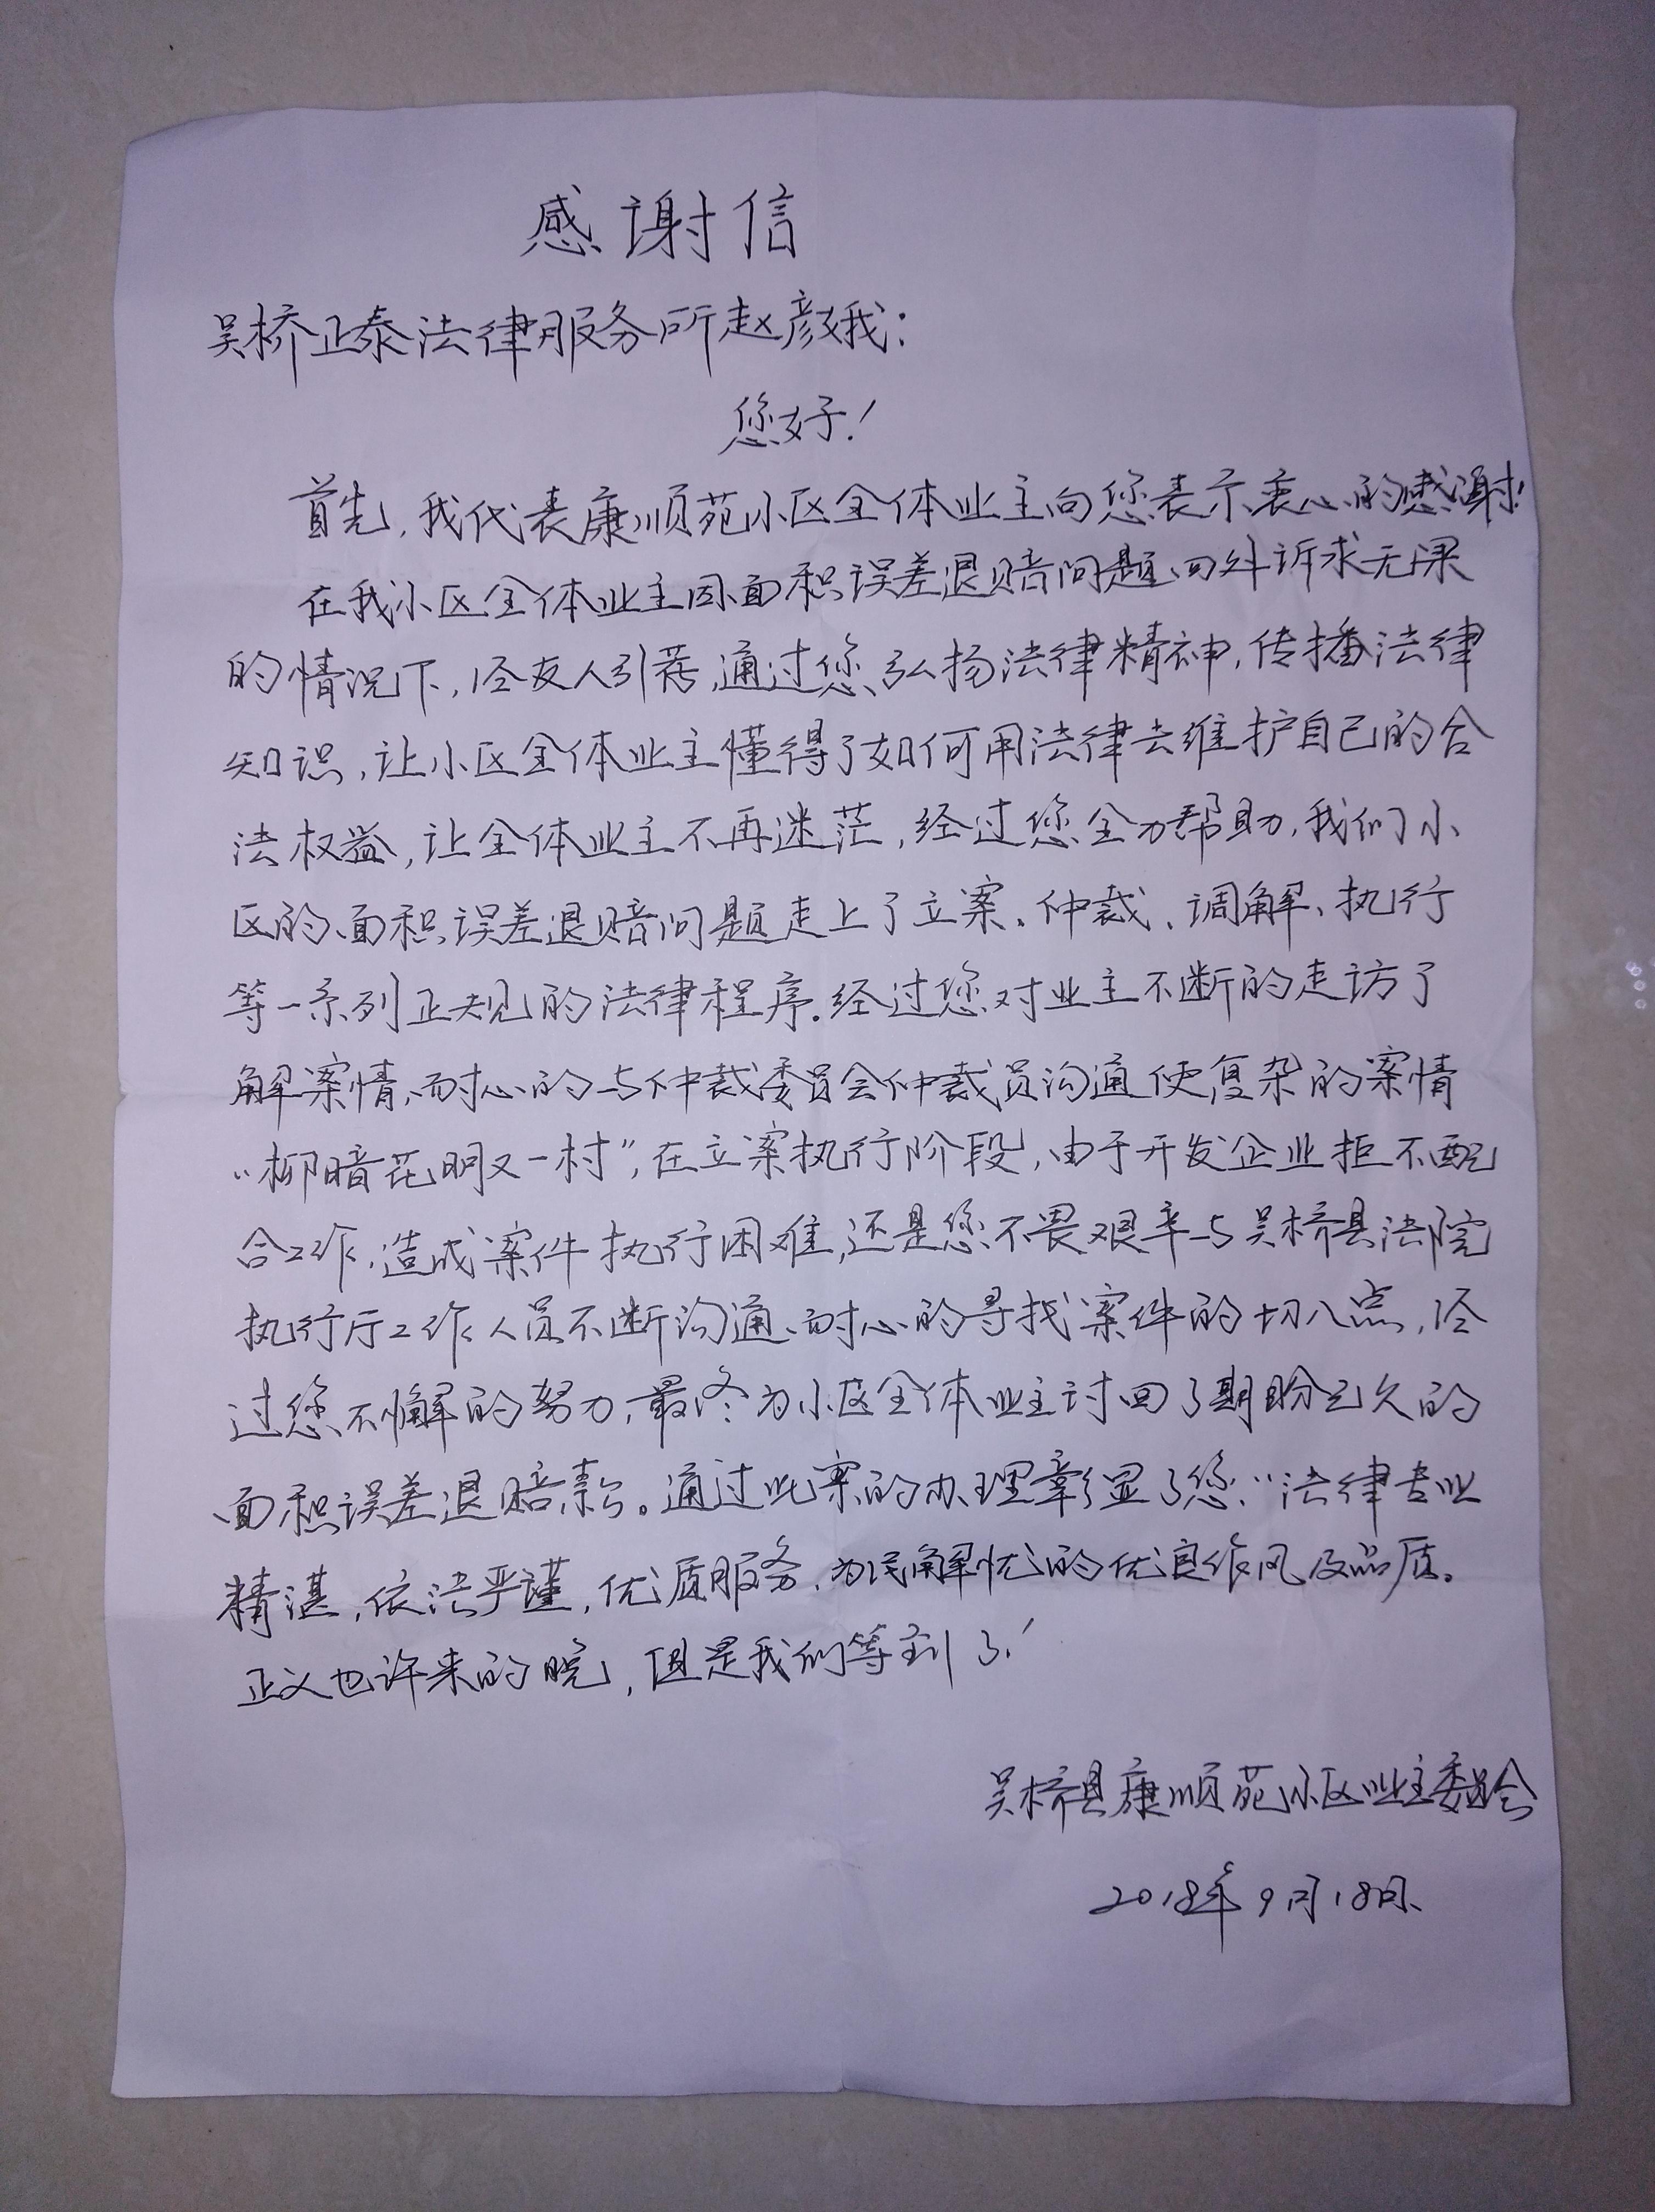 感谢信
吴桥正泰法律服务所赵彦我：
您好！
首先，我代表康顺苑小区全体业主向您表示衷心的感谢！
在我小区全体业主因面积误差退赔问题四外诉求无果
的情况下，经友人引荐，通过您弘扬法律精神，传播法律
知识，让小区全体业主懂得了如何用法律去维护自己的合
法权益，让全体业主不再迷茫，经过您全力帮助，我们小
区的面积误差退赔问题走上了立案、仲裁、调解、执行
等一系列正规的法律程序。经过您对业主不断的走访了
解案情，耐心的与仲裁委员会仲裁员沟通使复杂的案情
“柳暗花明又一村”，在立案执行阶段，由于开发企业拒不配
合工作，造成案件执行困难，还是您不畏艰辛与吴桥县法院
执行厅工作人员不断沟通、耐心的寻找案件的切入点，经
过您不懈的努力，最终为小区全体业主讨回了期盼已久的
面积误差退赔款。通过此案的办理彰显了您“法律专业
精湛，依法严谨，优质服务，为民解忧的优良作风及品质。
正义也许来的晚，但是我们等到了！
吴桥县康顺苑小区业主委员会
2018年9月18日